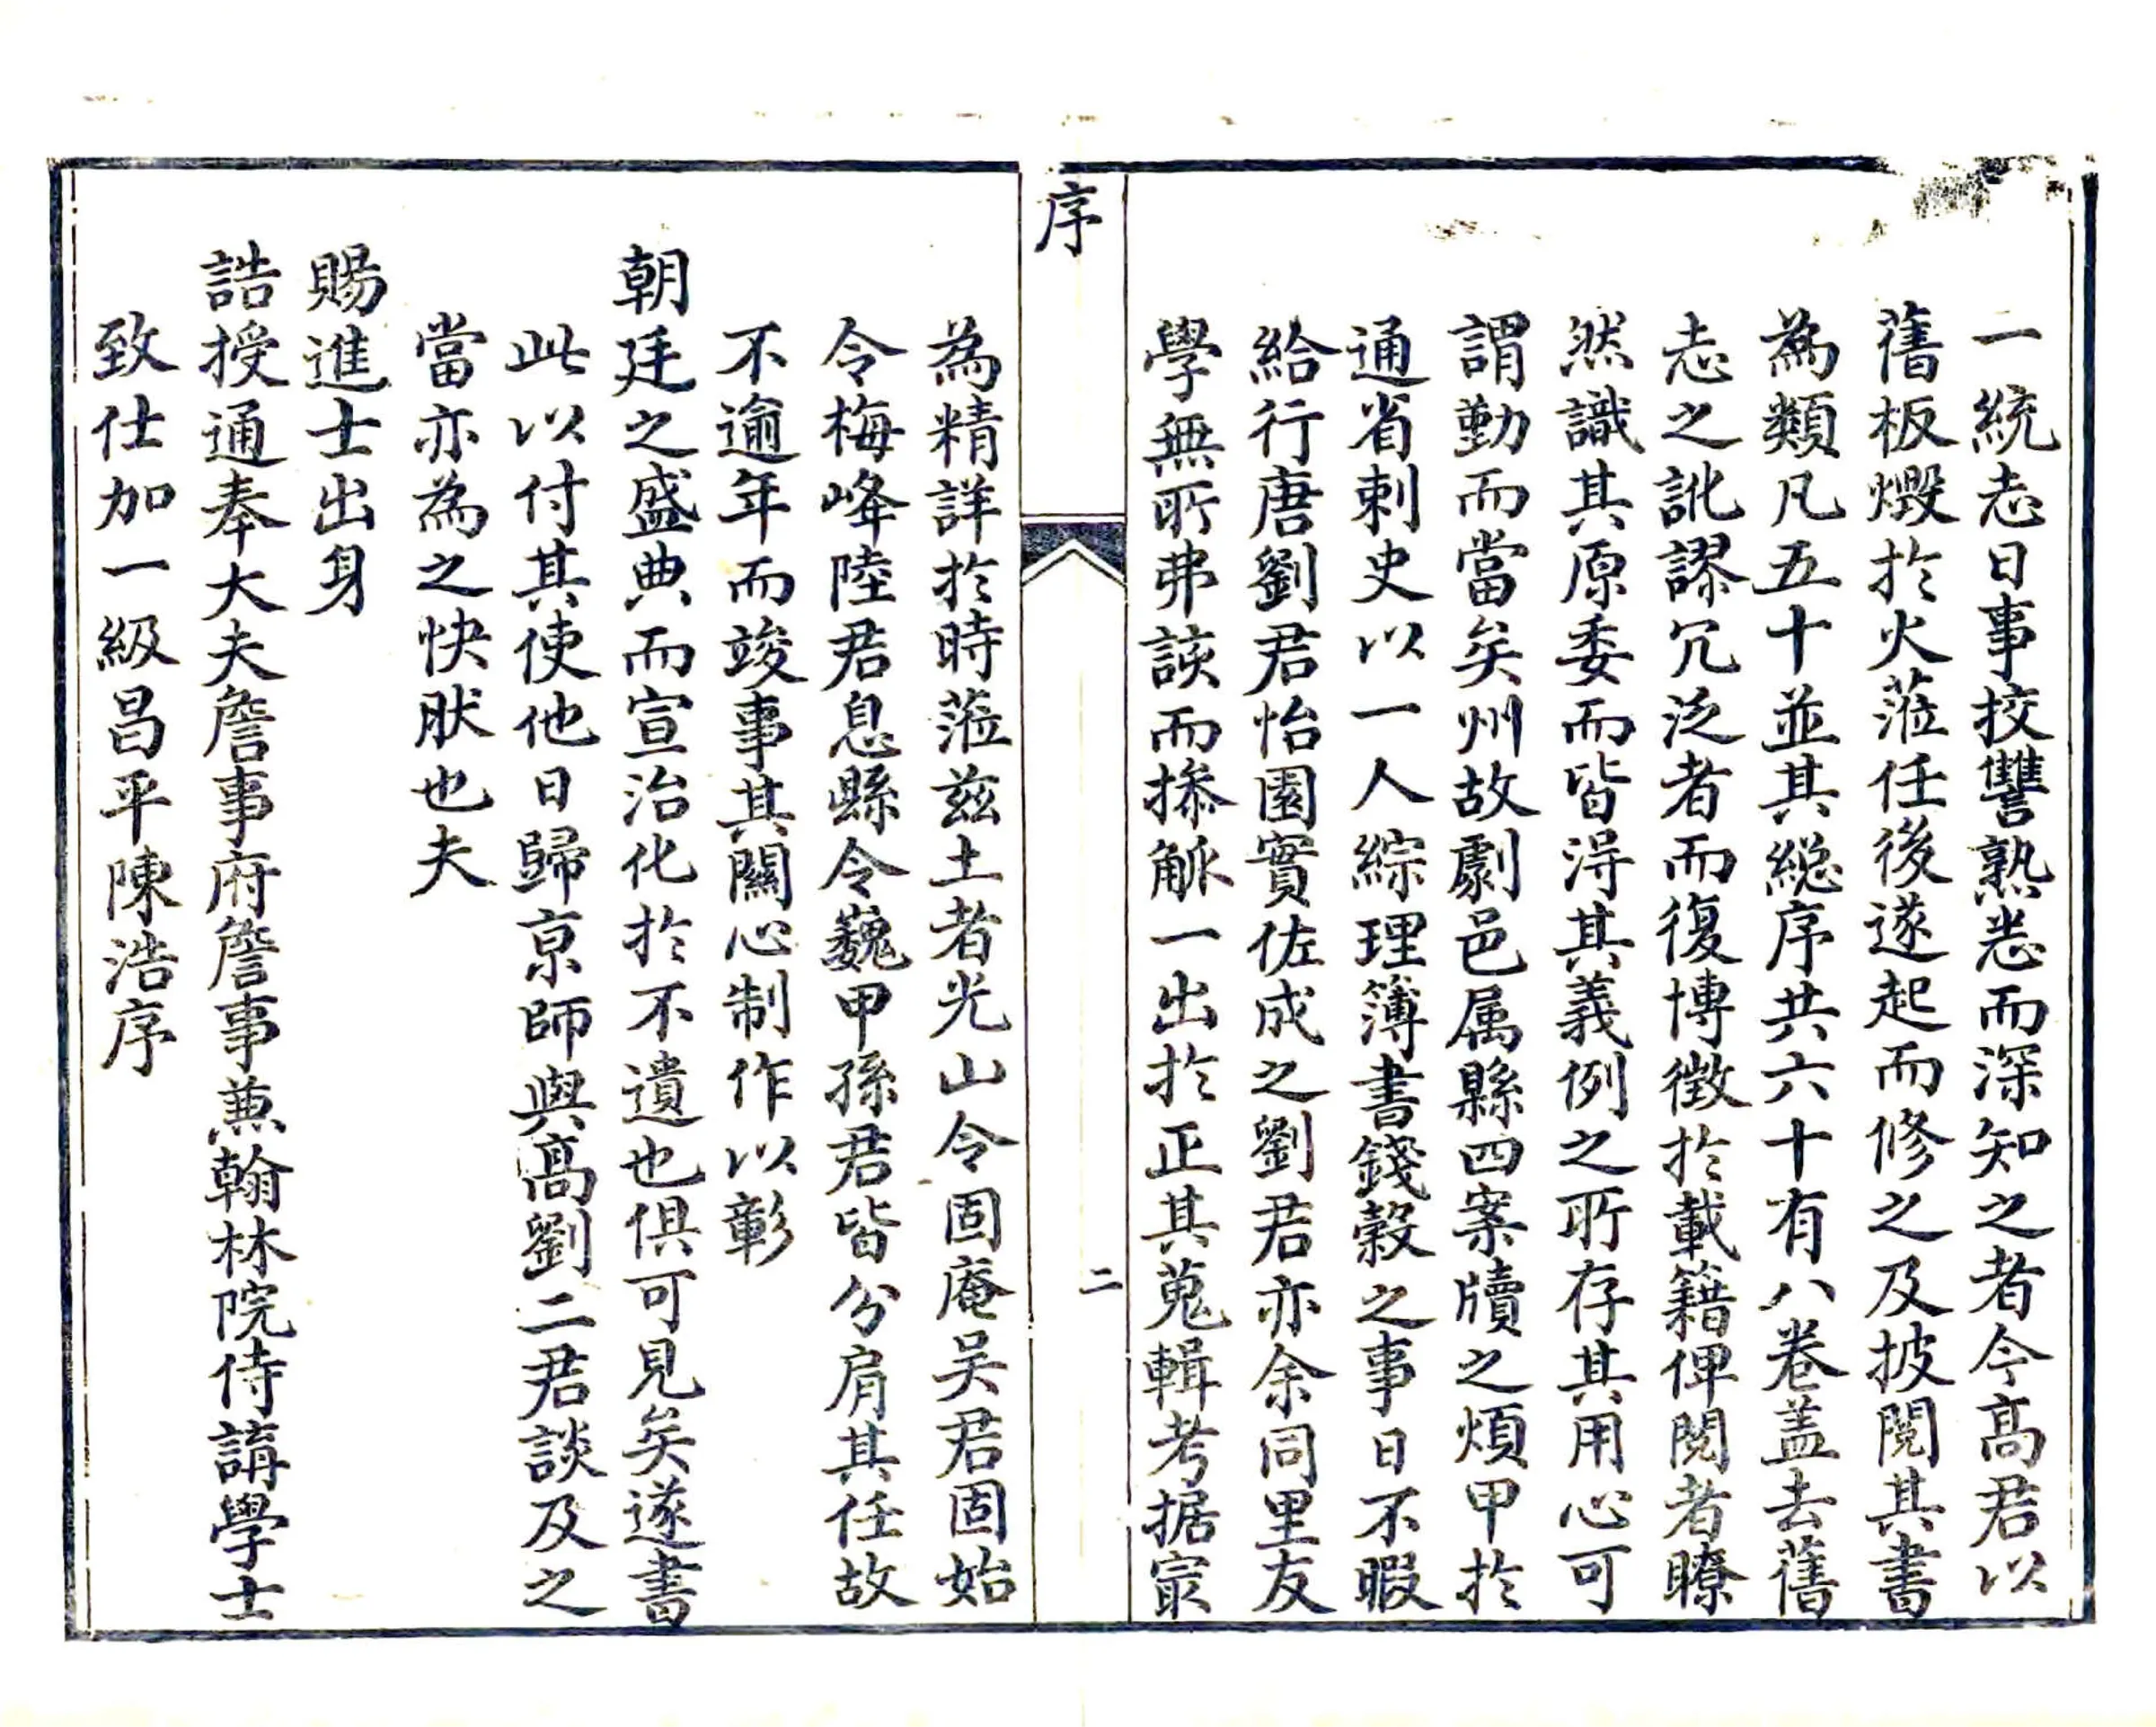 一統志日事挍讐熟悉而深知之者今髙君以
舊板燬扵火蒞任後遂起而修之及披閲其書
為類凡五十並其總序共六十有八卷盖去舊
志之訛謬冗泛者而復博徴扵載籍俾閲者瞭
然識其原委而皆淂其義例之所存其用心可
謂勤而當矣州故劇邑属縣四案牘之煩甲扵
通省刺史以一人綜理簿書錢穀之事日不暇
給行唐劉君怡園實佐成之劉君亦余同里友
學無所弗該而摻觚一出扵正其蒐輯考据㝡
序
二
為精詳扵時蒞兹土者光山令固庵吴君固始
令梅峰陸君息縣令巍甲孫君皆分肩其任故
不逾年而竣事其關心制作以彰
朝廷之盛典而宣治化扵不遺也俱可見矣遂書
此以付其使他日歸京師與髙劉二君談及之
當亦為之快肰也夫
賜進士出身
誥授通奉大夫詹事府詹事兼翰林院侍講學士
致仕加一級昌平陳浩序